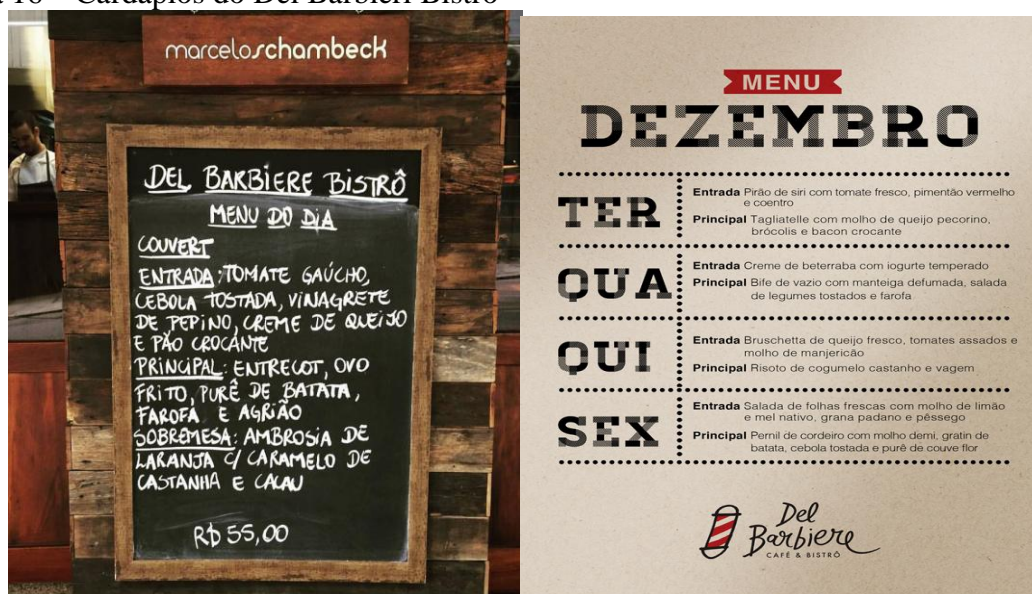 16 – Cardápios do Del Barbieri Bistrô
marceloschambeck
DEL BARBIERE BISTRÔ
MENU DO DIA
COUVERT
ENTRADA: TOMATE GAÚCHO,
CEBOLA TOSTADA, VINAGRETE
DE PEPINO, CREME DE QUEIJO
E PÃO CROCANTE
PRINCIPAL: ENTRECOT, OVO
FRITO, PURÊ DE BATATA,
FAROFA E AGRIÃO
SOBREMESA: AMBROSIA DE
LARANJA C/ CARAMELO DE
CASTANHA E CACAU
R$ 55,00
MENU
DEZEMBRO
TER
Entrada Pirão de siri com tomate fresco, pimentão vermelho
e coentro
Principal Tagliatelle com molho de queijo pecorino,
brócolis e bacon crocante
QUA
Entrada Creme de beterraba com iogurte temperado
Principal Bife de vazio com manteiga defumada, salada
de legumes tostados e farofa
QUI
Entrada Bruschetta de queijo fresco, tomates assados e
molho de manjericão
Principal Risoto de cogumelo castanho e vagem
SEX
Entrada Salada de folhas frescas com molho de limão
e mel nativo, grana padano e pêssego
Principal Pernil de cordeiro com molho demi, gratin de
batata, cebola tostada e purê de couve flor
Del
Barbiere
CAFÉ & BISTRÔ